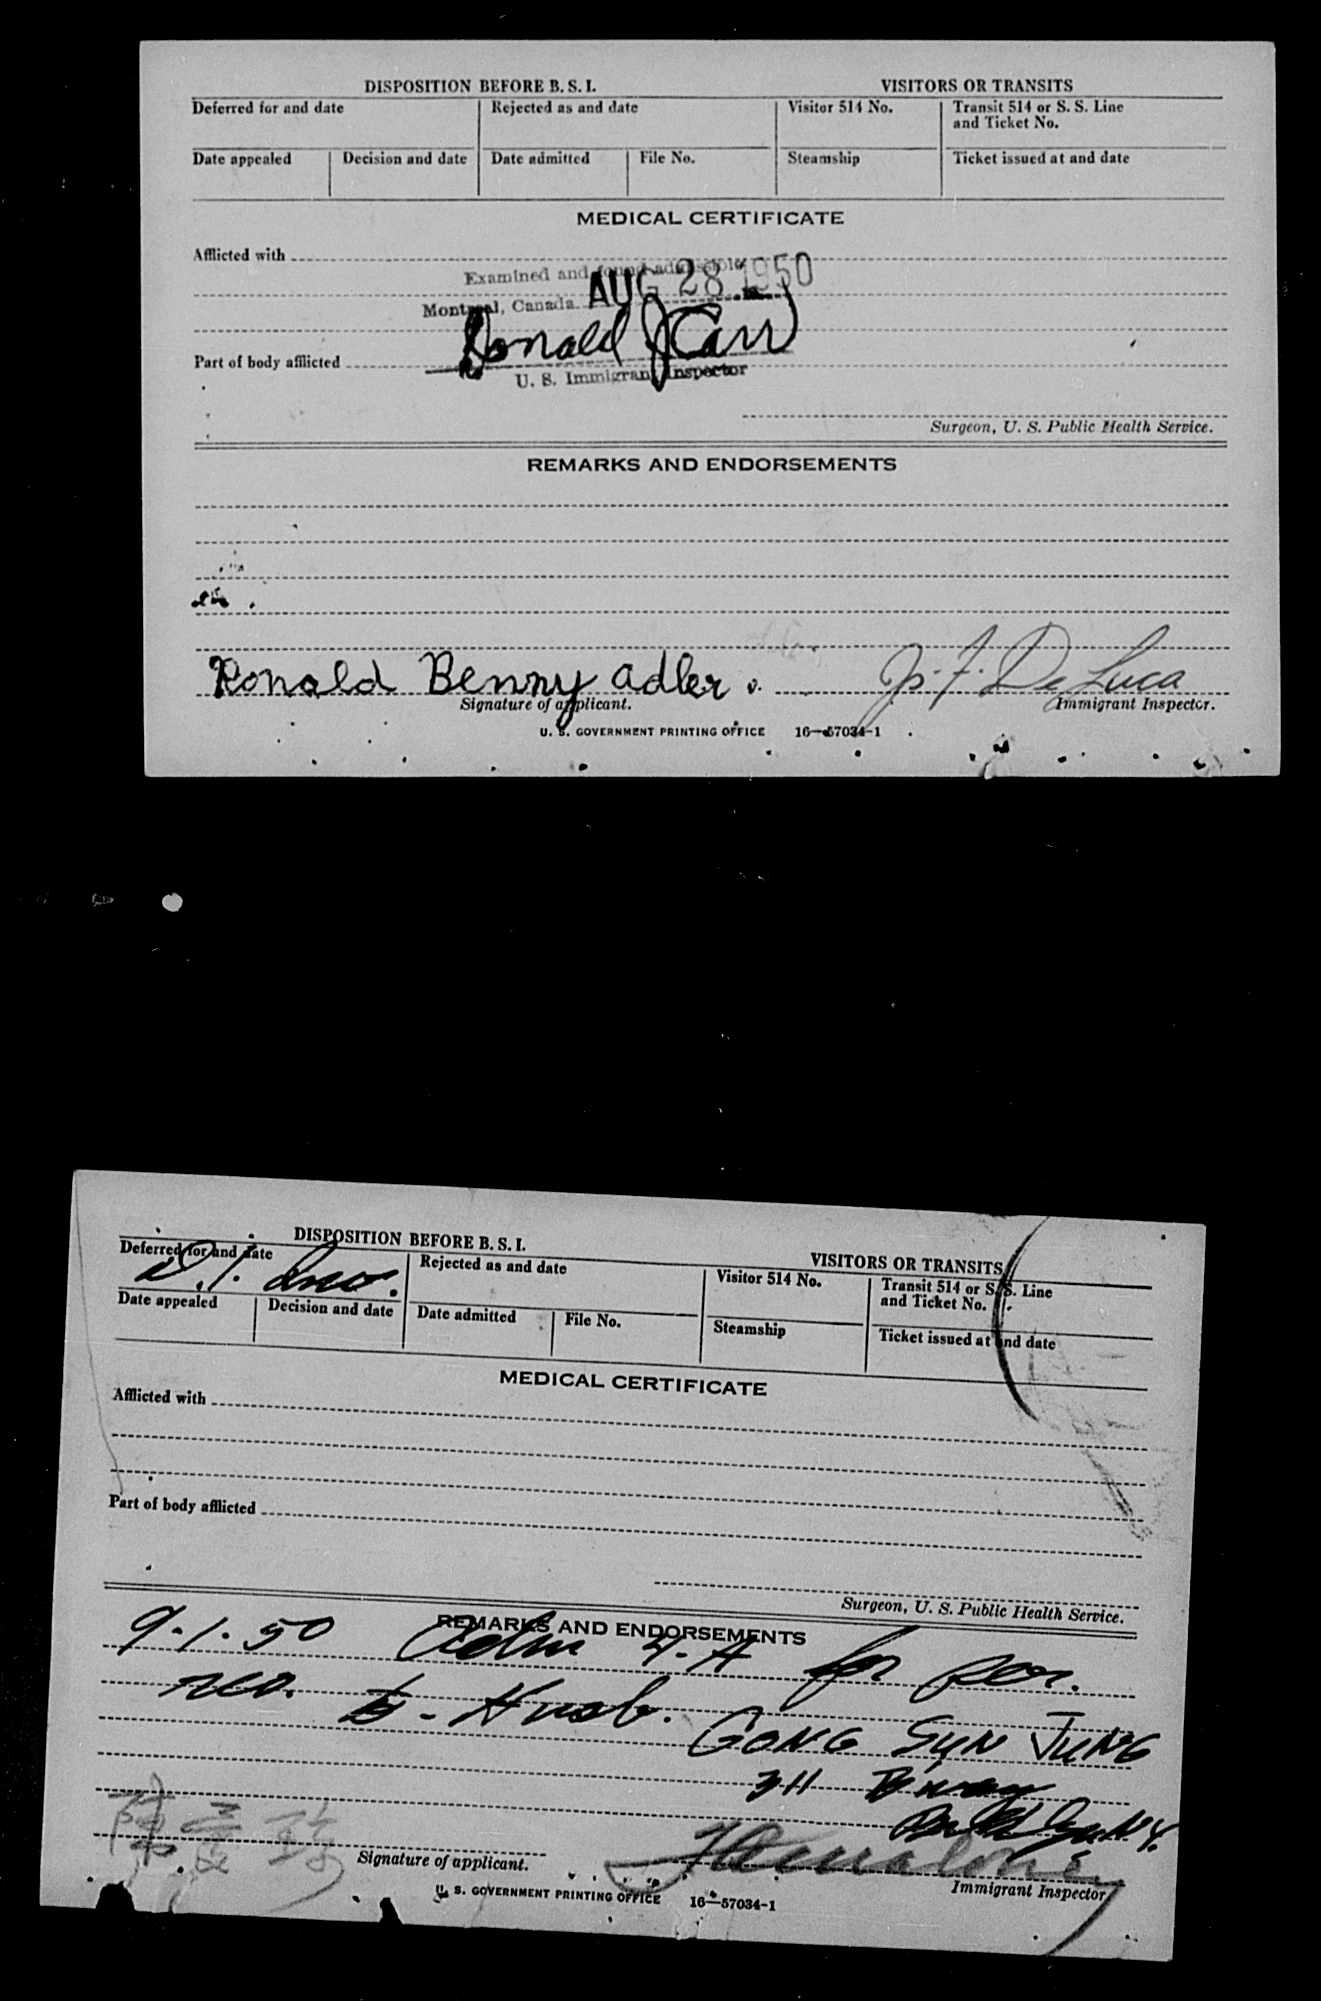 DISPOSITION BEFORE B. S. I. VISITORS OR TRANSITS
Deferred for and date Rejected as and date Visitor 514 No. Transit 514 or S. S. Line
and Ticket No.
Date appealed Decision and date Date admitted File No. Steamship Ticket issued at and date
MEDICAL CERTIFICATE
Afflicted with
Examined and found admissible
Montreal, Canada AUG 28 1950
Donald J Carr
Part of body afflicted
U. S. Immigrant Inspector
Surgeon, U. S. Public Health Service.
REMARKS AND ENDORSEMENTS
Ronald Benny Adler J. F. De Luca
Signature of applicant. Immigrant Inspector.
U. S. GOVERNMENT PRINTING OFFICE 16—57034-1
DISPOSITION BEFORE B. S. I. VISITORS OR TRANSITS
Deferred for and date Rejected as and date Visitor 514 No. Transit 514 or S. S. Line
and Ticket No.
Date appealed Decision and date Date admitted File No. Steamship Ticket issued at and date
MEDICAL CERTIFICATE
Afflicted with
Part of body afflicted
Surgeon, U. S. Public Health Service.
REMARKS AND ENDORSEMENTS
9-1-50 Adm 4-A for per.
res. to - Husb. GONG SYN JUNG
311 B'way
N.Y.
陳
Signature of applicant. Immigrant Inspector
U. S. GOVERNMENT PRINTING OFFICE 16—57034-1